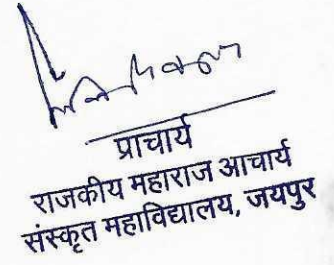 प्राचार्य
राजकीय महाराज आचार्य
संस्कृत महाविद्यालय, जयपुर